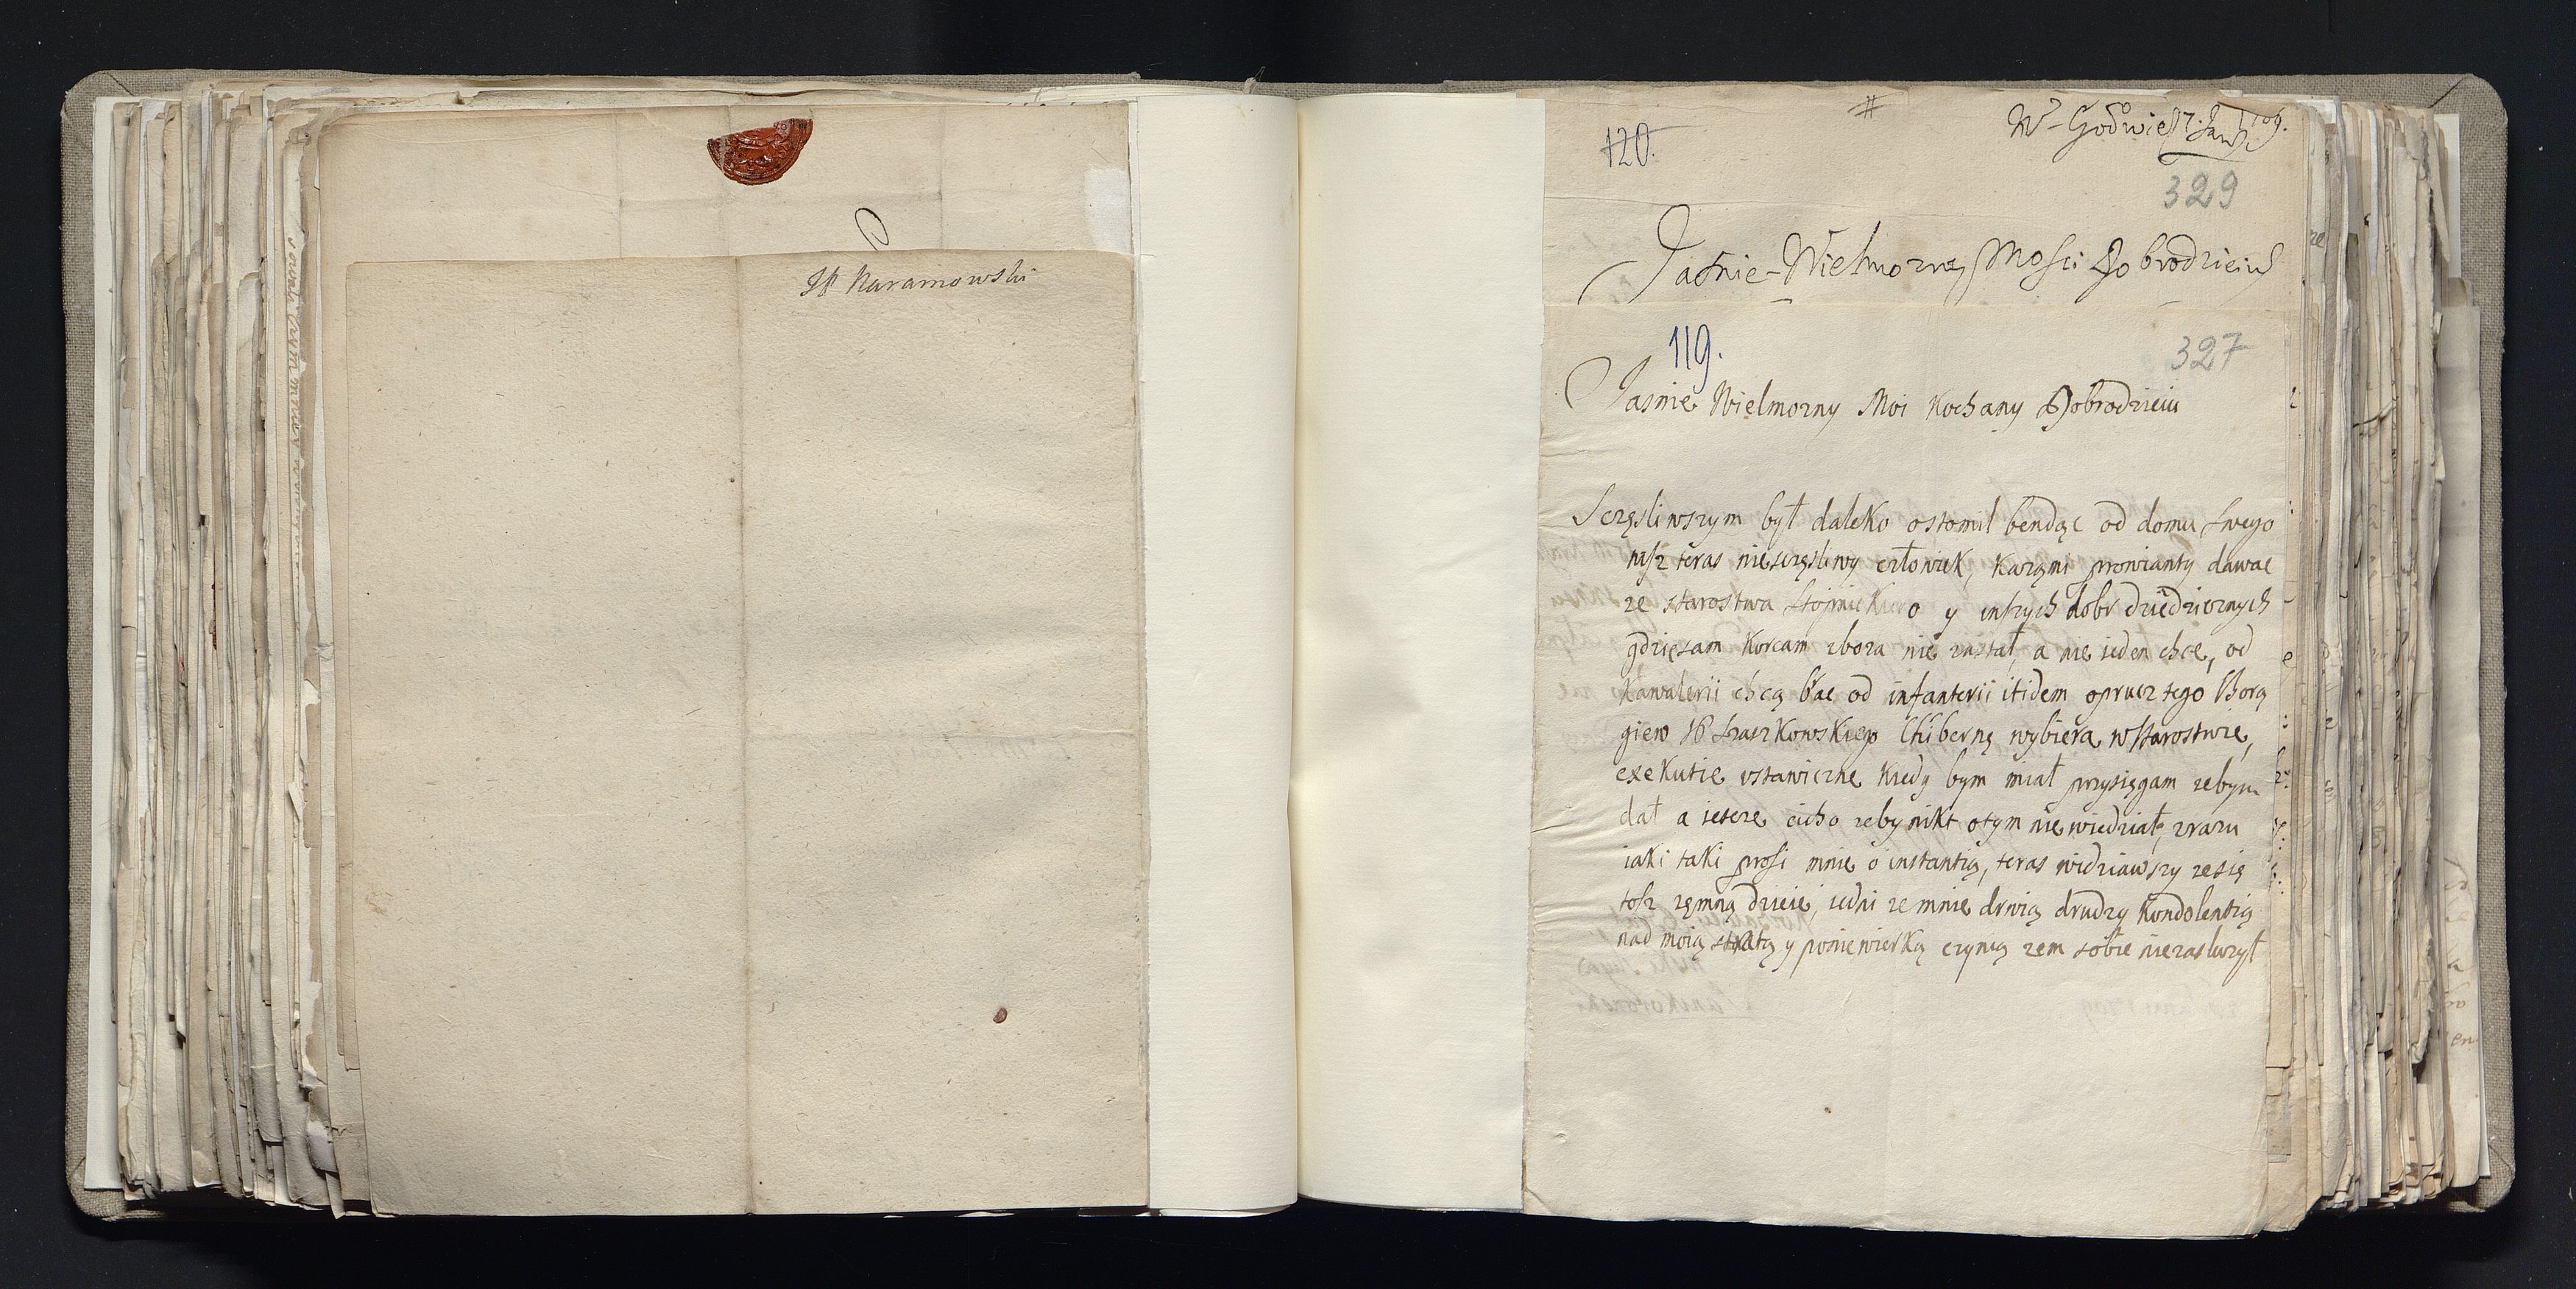 JP Karanowski
#
120.
W Godwie 17. Jan 1709.
329
Jaśnie-Wielmozny Mosci Dobrodzieiu
119.
327
Jasnie Wielmozny Moi Kochany Dobrodzieiu
Sczęsliwszym był daleko ostomil bendąc od domu swego
nisz teras niesczęsliwy człowiek, karzą mi prowianty dawac
ze starostwa y inszych dobr dziedzicznych
gdzie sam korcam zboza nie zastał, a nie ieden chce, od
kawalerii chcą brac od infanterii itidem oprucz tego Chorą
giew JP Staszkowskiego Chiberną wybiera w starostwie,
exekutie ustawiczne kiedy bym miał przysięgam zebym
dał a iescze cicho zeby nikt o tym nie wiedział, zrazu
iaki taki prosi mnie o instantią, teras widziawszy ze się
tosz zemną dzieie, iedni ze mnie drwią drudzy kondolentią
nad moią stratą y poniewierką czynią zem sobie niezasluzył